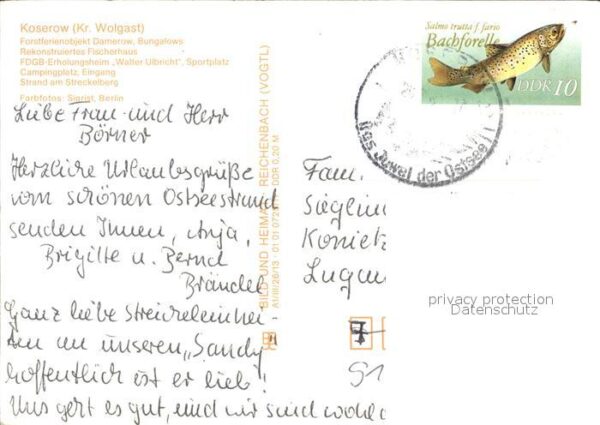 Koserow (Kr. Wolgast)
Forstferienobjekt Damerow, Bungalows
Rekonstruiertes Fischerhaus
FDGB-Erholungsheim „Walter Ulbricht", Sportplatz
Campingplatz, Eingang
Strand am Streckelberg
Farbfotos: Sigrist, Berlin
Liebe Frau und Herr
Börner
Herzliche Urlaubsgrüße
vom schönen Ostseestrand
senden Ihnen, Anja,
Brigitte u. Bernd
Brändel
Ganz liebe Streicheleinhei-
ten an unseren „Sandy"
hoffentlich ist er lieb!
Uns geht es gut, und wir sind wohl
BILD UND HEIMAT REICHENBACH (VOGTL)
A1/III/26/13 DDR 0,20 M
Salmo trutta f. fario
Bachforelle
DDR 10
das Juwel der Ostsee
Fam.
Sieglin
Koniet
Lugau
privacy protection
Datenschutz